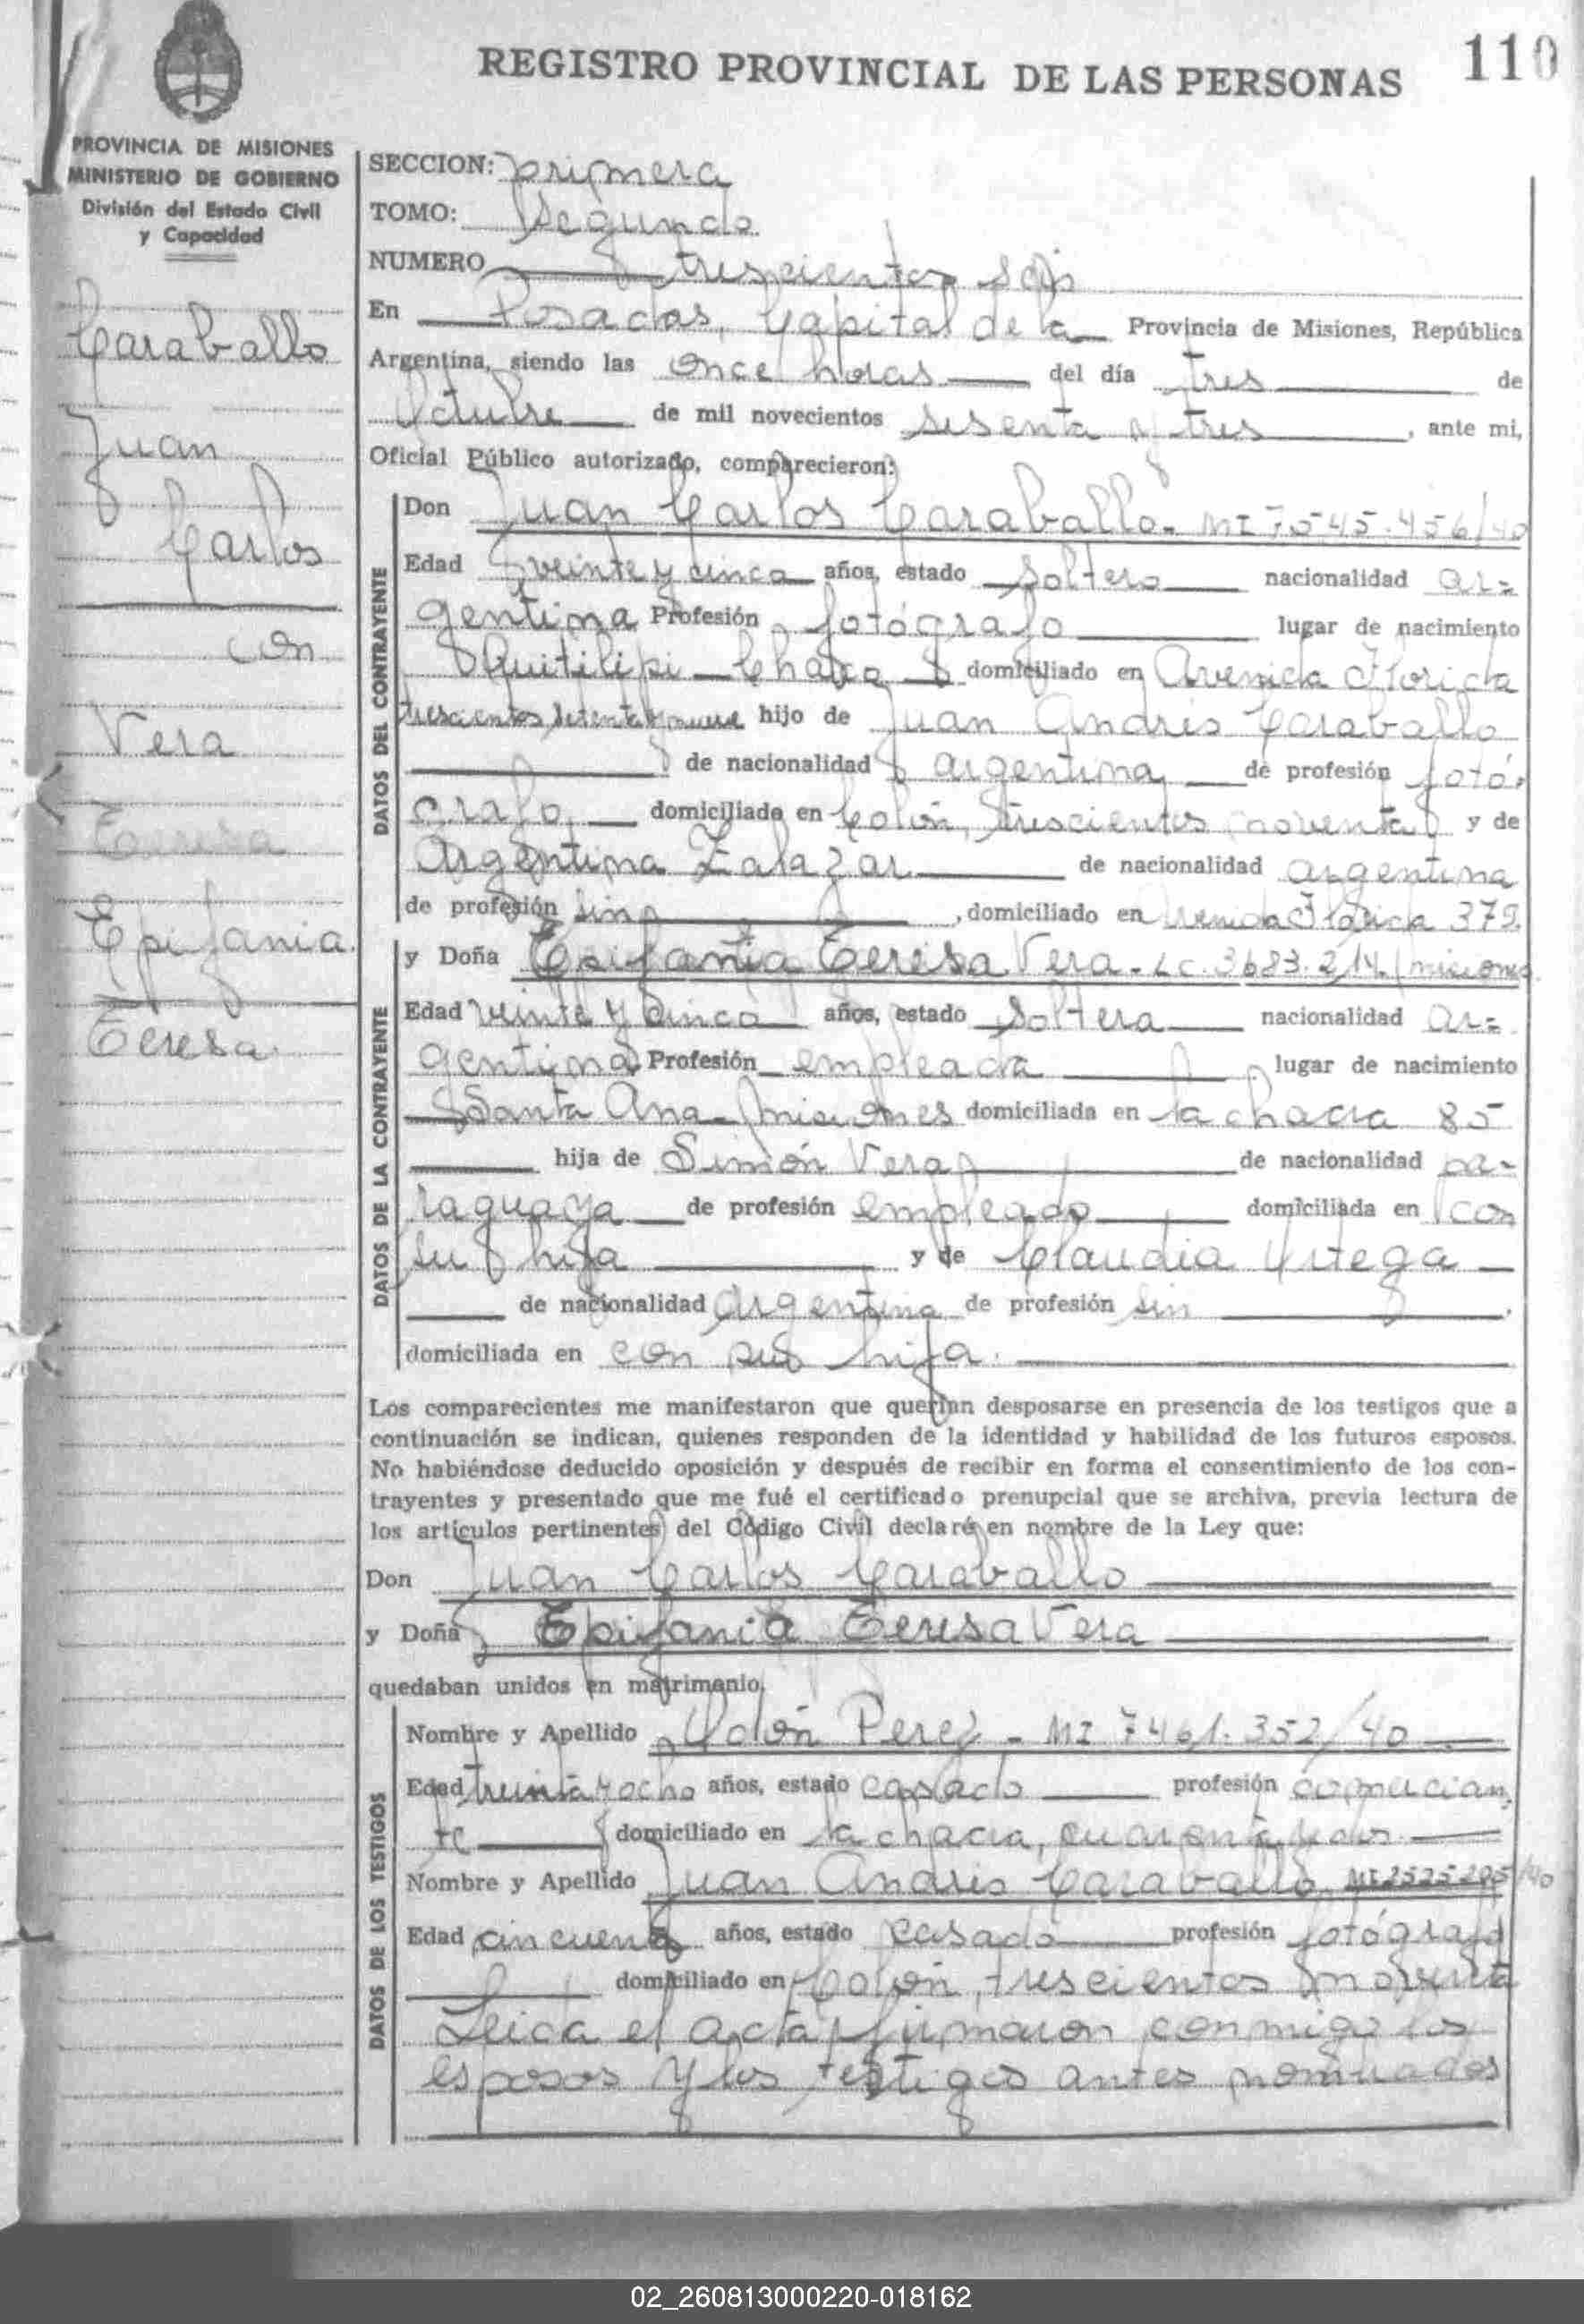 REGISTRO PROVINCIAL DE LAS PERSONAS 110
PROVINCIA DE MISIONES
MINISTERIO DE GOBIERNO
División del Estado Civil
y Capacidad
Caraballo
Juan
Carlos
con
Vera
Teresa
Epifania
Teresa
SECCION: primera
TOMO: segundo
NUMERO trescientos seis
En Posadas, Capital de la Provincia de Misiones, República
Argentina, siendo las once horas del día tres de
Octubre de mil novecientos sesenta y tres, ante mi,
Oficial Público autorizado, comparecieron:
DATOS DEL CONTRAYENTE
Don Juan Carlos Caraballo - MI 7545.456/40
Edad veinte y cinco años, estado soltero nacionalidad ar=
gentina Profesión fotógrafo lugar de nacimiento
Quitilipi - Chaco domiciliado en Avenida Florida
trescientos setenta y nueve hijo de Juan Andrés Caraballo
de nacionalidad argentina de profesión fotó-
grafo domiciliado en Colón, trescientos noventa y de
Argentina Zalazar de nacionalidad argentina
de profesión sin, domiciliado en Avenida Florida 379.
DATOS DE LA CONTRAYENTE
y Doña Epifania Teresa Vera - LC. 3683.214. misiones
Edad veinte y cinco años, estado soltera nacionalidad ar=
gentina Profesión empleada lugar de nacimiento
Santa Ana - misiones domiciliada en la chacra 85
hija de Simón Vera de nacionalidad pa-
raguaya de profesión empleado domiciliada en con
su hija y de Claudia Ortega
de nacionalidad argentina de profesión sin
domiciliada en con su hija.
Los comparecientes me manifestaron que querían desposarse en presencia de los testigos que a
continuación se indican, quienes responden de la identidad y habilidad de los futuros esposos.
No habiéndose deducido oposición y después de recibir en forma el consentimiento de los con-
trayentes y presentado que me fué el certificado prenupcial que se archiva, previa lectura de
los artículos pertinentes del Código Civil declaré en nombre de la Ley que:
Don Juan Carlos Caraballo
y Doña Epifania Teresa Vera
quedaban unidos en matrimonio.
DATOS DE LOS TESTIGOS
Nombre y Apellido Colón Perez - MI 7461.352/40
Edad treinta y ocho años, estado casado profesión comercian
te domiciliado en la chacra, cuarenta y dos
Nombre y Apellido Juan Andrés Caraballo MI 2525205/40
Edad cincuenta años, estado casado profesión fotógrafo
domiciliado en Colón, trescientos noventa
Leida el acta firmaron conmigo los
esposos y los testigos antes nombrados
02_260813000220-018162